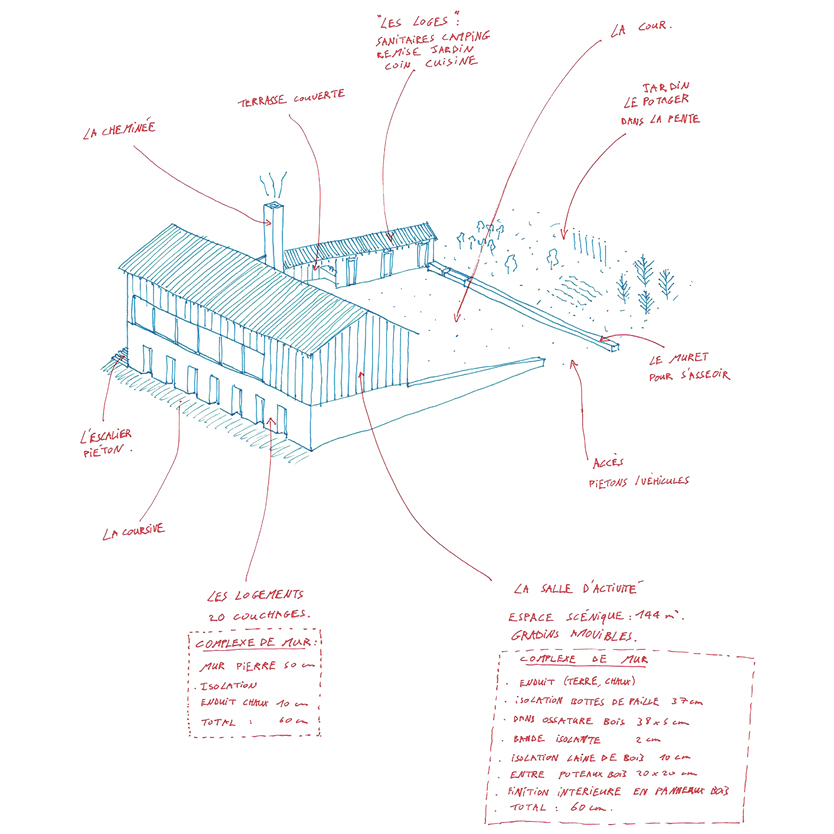 "LES LOGES":
SANITAIRES CAMPING
REMISE JARDIN
COIN CUISINE
LA COUR.
JARDIN
LE POTAGER
DANS LA PENTE
TERRASSE COUVERTE
LA CHEMINÉE
LE MURET
POUR S'ASSEOIR
L'ESCALIER
PIÉTON.
ACCÈS
PIETONS / VÉHICULES
LA COURSIVE
LES LOGEMENTS
20 COUCHAGES.
COMPLEXE DE MUR:
MUR PIERRE 50 cm
. ISOLATION
ENDUIT CHAUX 10 cm
TOTAL : 60 cm
LA SALLE D'ACTIVITÉ
ESPACE SCÉNIQUE: 144 m².
GRADINS AMOVIBLES.
COMPLEXE DE MUR
. ENDUIT (TERRE, CHAUX)
. ISOLATION BOTTES DE PAILLE 37 cm
. DANS OSSATURE BOIS 38 x 5 cm
. BANDE ISOLANTE 2 cm
. ISOLATION LAINE DE BOIS 10 cm
. ENTRE POTEAUX BOIS 20 x 20 cm
. FINITION INTÉRIEURE EN PANNEAUX BOIS
. TOTAL : 60 cm.